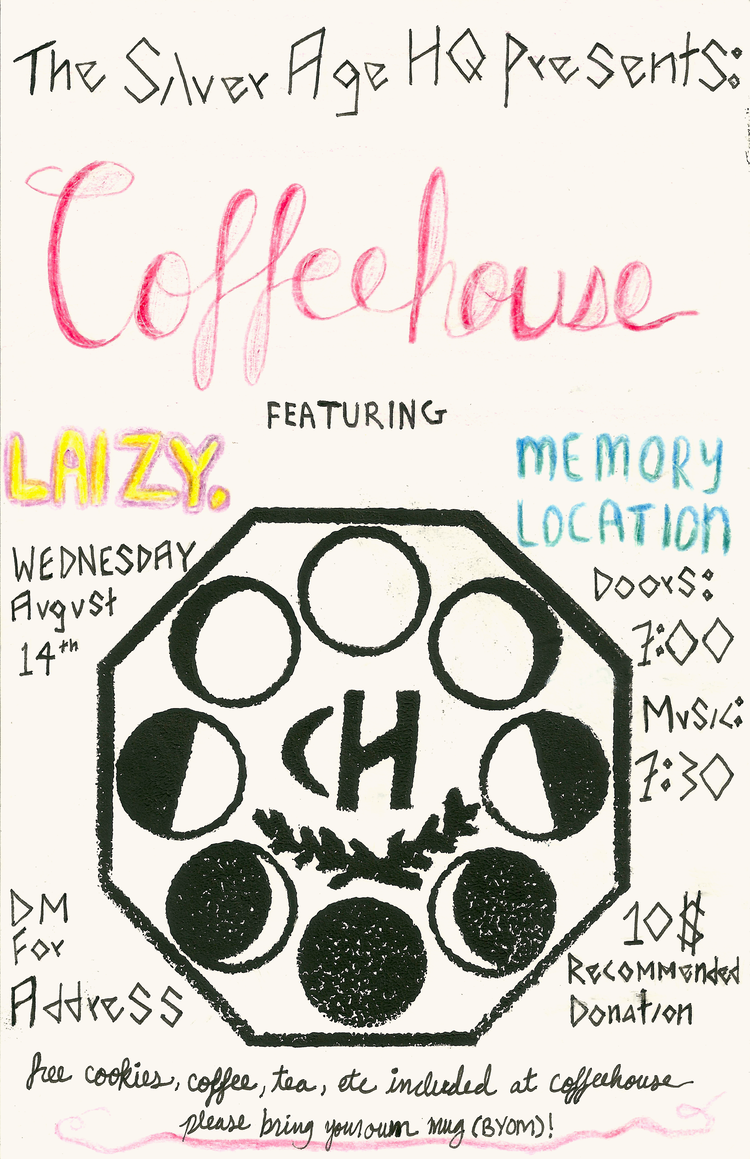 The Silver Age HQ Presents:
Coffeehouse
FEATURING
LAIZY.
MEMORY
LOCATION
WEDNESDAY
August
14th
Doors:
7:00
Music:
7:30
CH
DM
For
Address
10$
Recommended
Donation
free cookies, coffee, tea, etc included at coffeehouse
please bring your own mug (BYOM)!